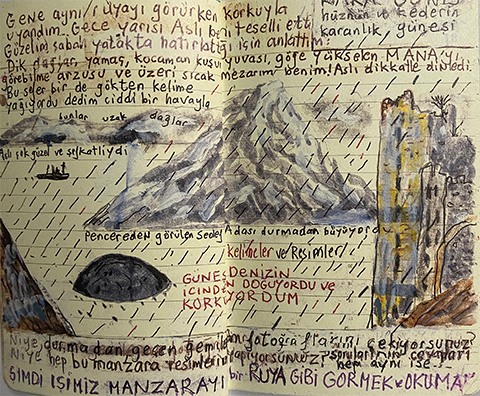 Gene aynı rüyayı görürken korkuyla
uyandım. Gece yarısı Aslı beni teselli etti
KARA GÜNEŞ
hüznün ve kederin
karanlık, güneşi
Güzelim sabah yatakta hatırlattığı için anlattım:
Dik dağlar yamaç, kocaman kuşun yuvası, göğe yükselen MANA'YI
görebilme arzusu ve özeri sıcak mezarım benim! Aslı dikkatle dinledi.
Bu sefer bir de gökten kelime
yağıyordu dedim ciddi bir havayla
bunlar uzak dağlar
Aslı çok güzel ve şefkatliydi
Pencereden görülen Sedef Adası durmadan büyüyordu
kelimeler ve Resimler
GÜNEŞ DENİZİN
İÇİNDEN DOĞUYORDU ve
KORKUYORDUM
Niye durmadan geçen gemilerin fotoğraflarını çekiyorsunuz?
Niye hep bu manzara resimlerini yapıyorsunuz? sorularının cevapları
hep aynı ise...
ŞİMDİ İŞİMİZ MANZARAYI bir RÜYA GİBİ GÖRMEK ve OKUMAK